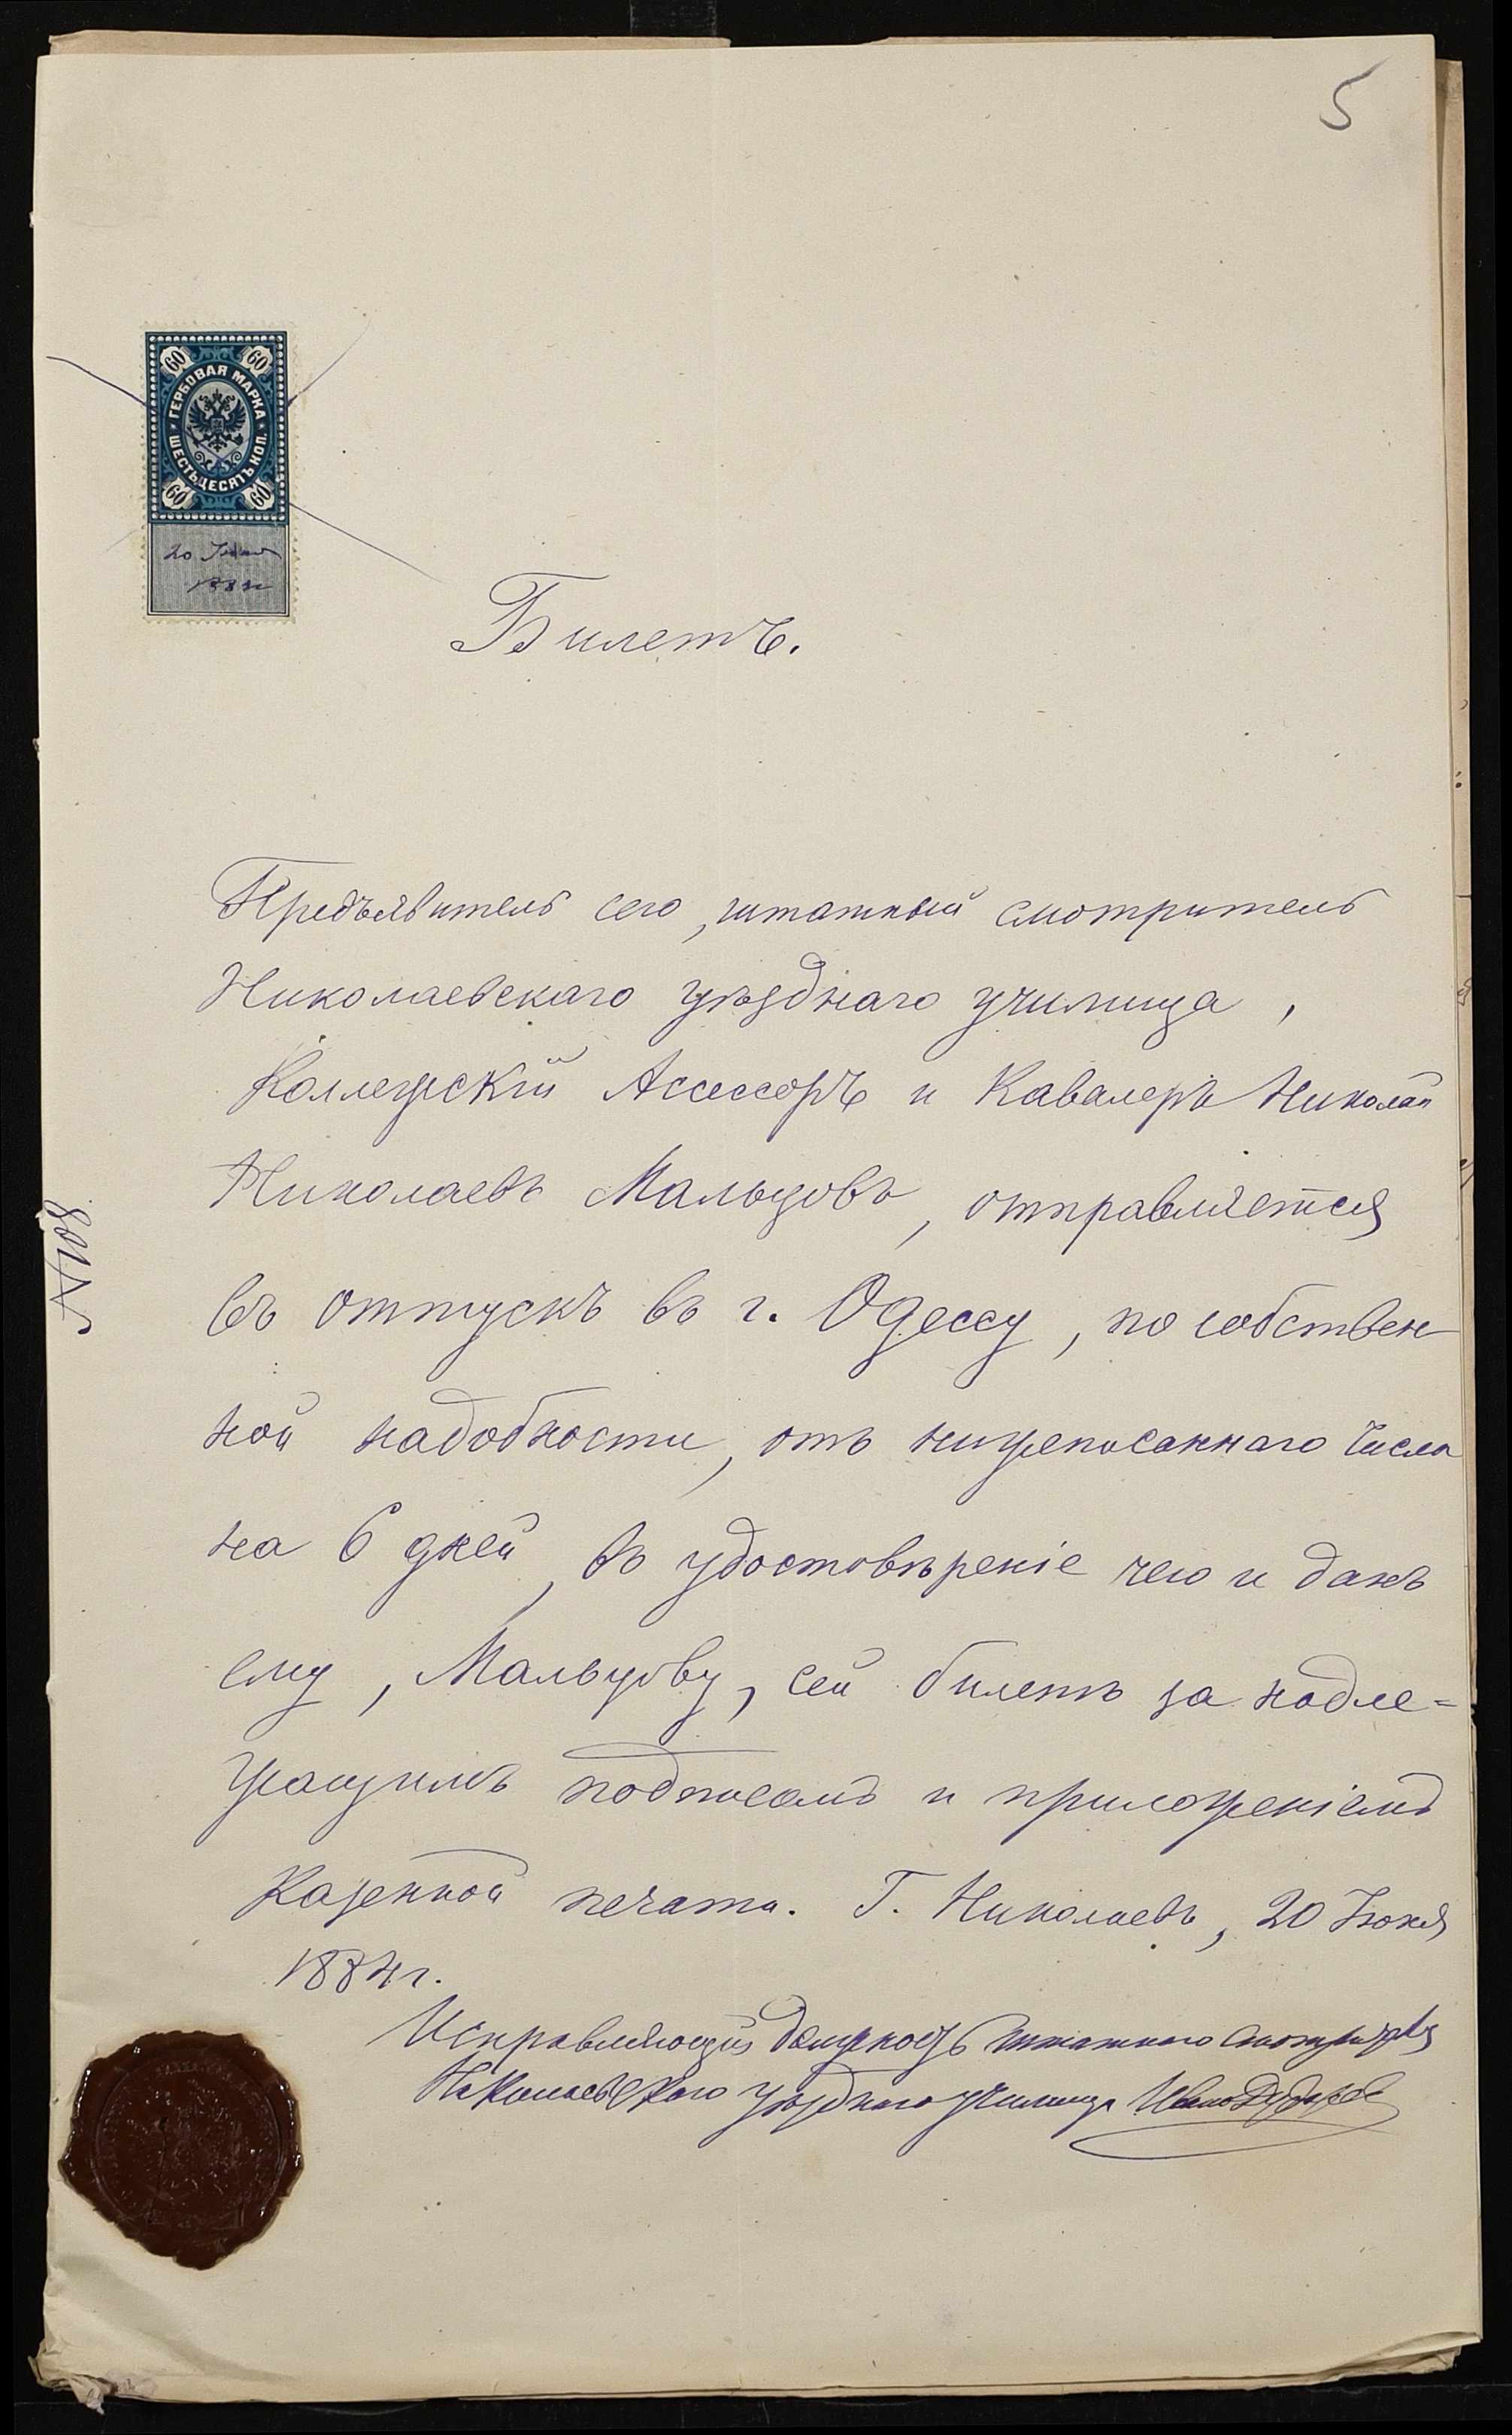 5
60 60
ГЕРБОВАЯ МАРКА
ШЕСТЬДЕСЯТЪ КОП.
60 60
20 Іюня
1884 г
Билетъ.
Предъявитель сего, штатный смотритель
Николаевскаго уѣзднаго училища,
Коллежскій Ассессоръ и Кавалеръ Николай
Николаевъ Мальцовъ, отправляется
въ отпускъ въ г. Одессу, по собствен
ной надобности, отъ нижеписаннаго числа
на 6 дней, въ удостовѣреніе чего и данъ
ему, Мальцову, сей билетъ за надле=
жащимъ подписомъ и приложеніемъ
Казенной печати. Г. Николаевъ, 20 Іюня
1884 г.
Исправляющій должность штатнаго смотрителя
Николаевскаго уѣзднаго училища Иванъ
№ 108